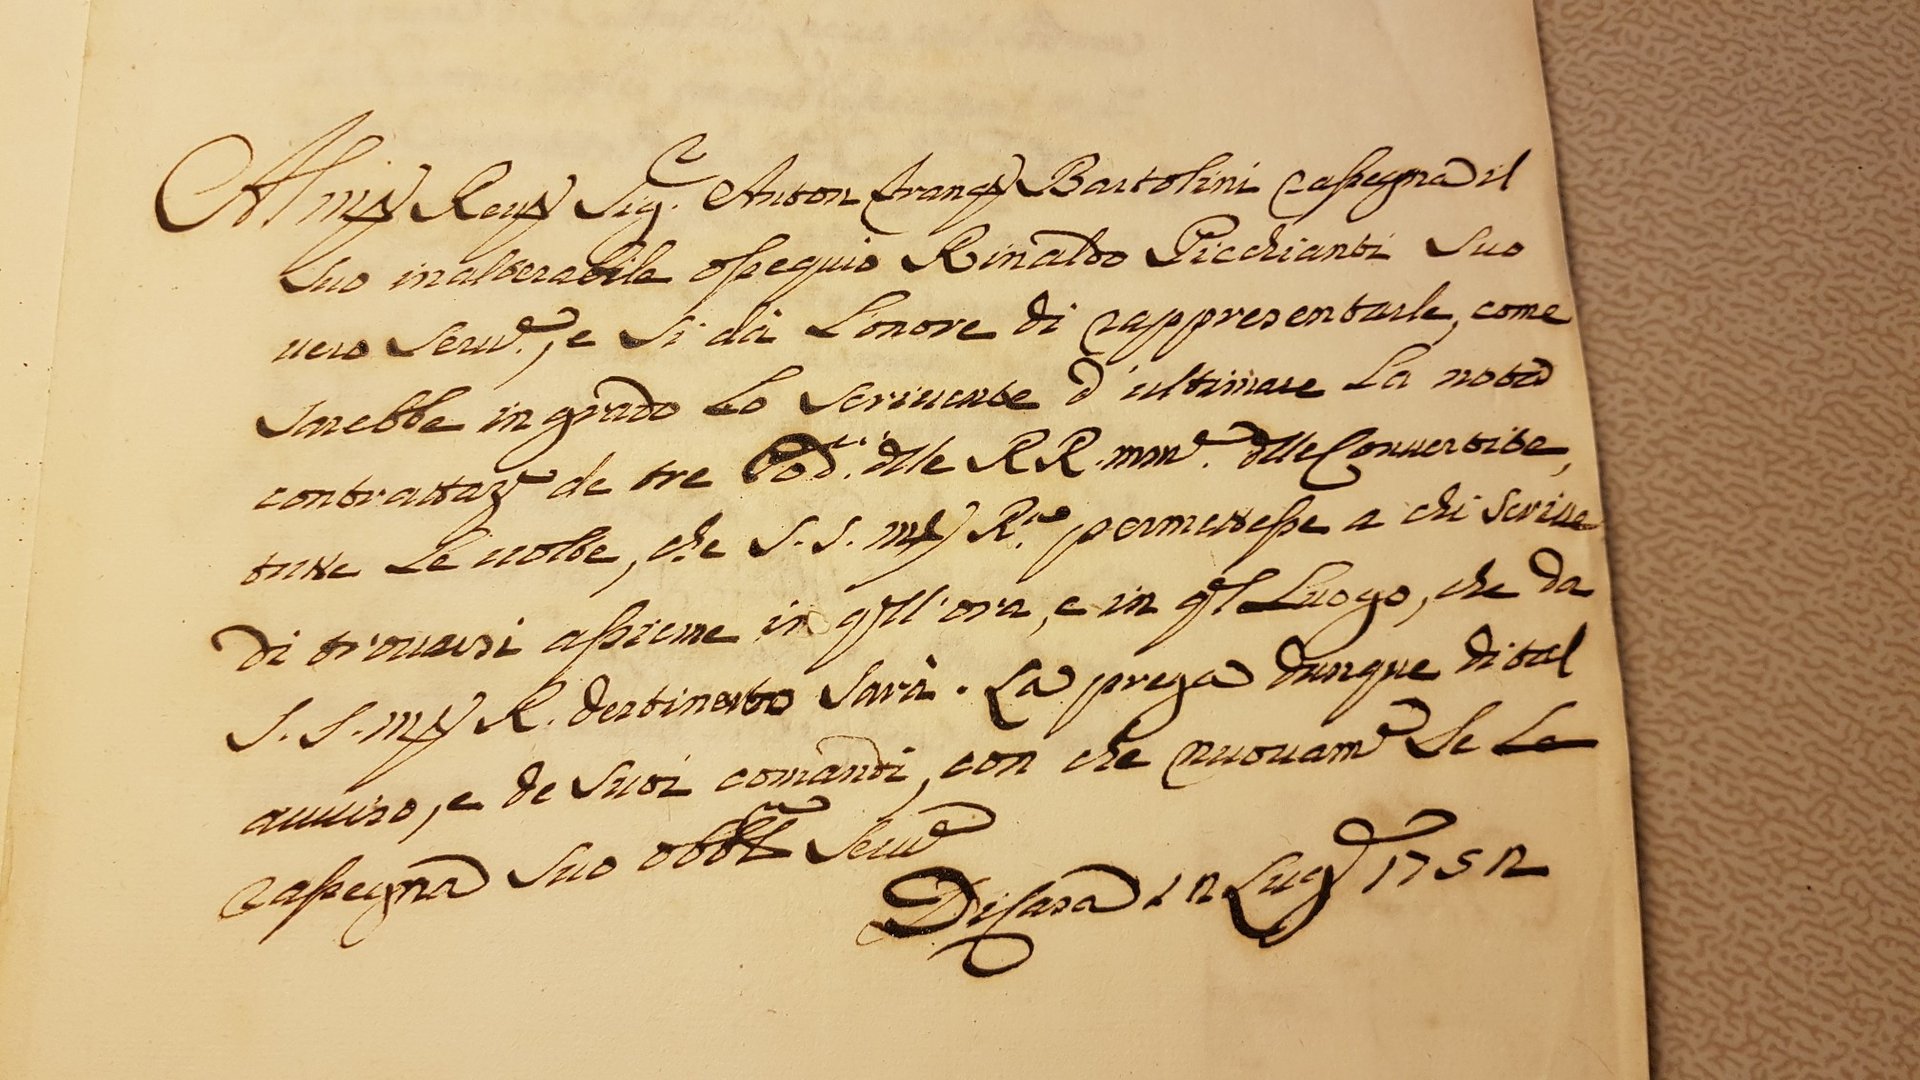 Al m.to Rev.do Sig.r Anton Franc.o Bartolini rassegna il
suo inalterabile ossequio Rinaldo Picchianti suo
vero Serv.e, e si dà l'onore di rappresentarle, come
sarebbe in grado lo scrivente d'ultimare la nota
contrattaz.e de tre Pod.ri dlle RR. mm.e dlle Convertite,
tutte le volte, che S. S. m.to R.da permettesse a chi scrive
di trovarsi assieme in qll'ora, e in ql Luogo, che da
S. S. m.to R. destinato sarà. La prega dunque di tal
avviso, e de suoi comandi, con che nuovam.e se le
rassegna suo obbl.mo Serv.e
Di Casa 12 Lug.o 1752